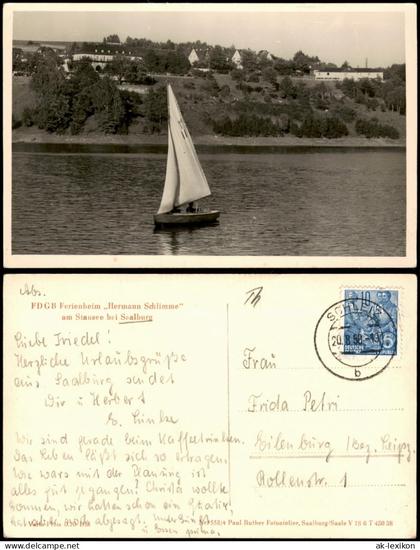 Abs.
FDGB Ferienheim „Hermann Schlimme"
am Stausee bei Saalburg
Liebe Friedel!
Herzliche Urlaubsgrüße
aus Saalburg sendet
Dir u Herbert
E. Linke
Wir sind gerade beim Kaffeetrinken.
Das Leben läßt sich so ertragen.
Wie wars mit der Planung ist
alles gut gegangen? Christa wollte
kommen, wir hatten schon ein Quartier
hat aber wohl abgesagt. Unterkunft
u Essen prima.
Th
SCHLEIZ
20.8.58
b
10
15
DEUTSCHE
Frau
Frida Petri
Eilenburg (Bez. Leipz.
Rollenstr. 1
558/4 Paul Ruther Fotoatelier, Saalburg/Saale V 18 6 T 420 58
ak-lexikon.cc